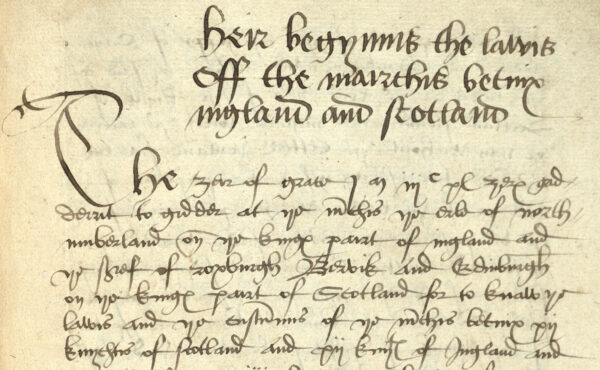 Heir begynnis the lawis
Off the marchis betuix
ingland and scotland
The zeir of grace j m ijᶜ xl gad-
derrit to gidder at ye mchis ye erle of north-
umberland on ye kingx pairt of ingland and
ye shref of roxburgh Bervik and Edinburgh
on ye kingx part of Scotland for to knaw ye
lawis and ye custumis of ye mchis betuix xij
knychtis of scotland and xij of Ingland and